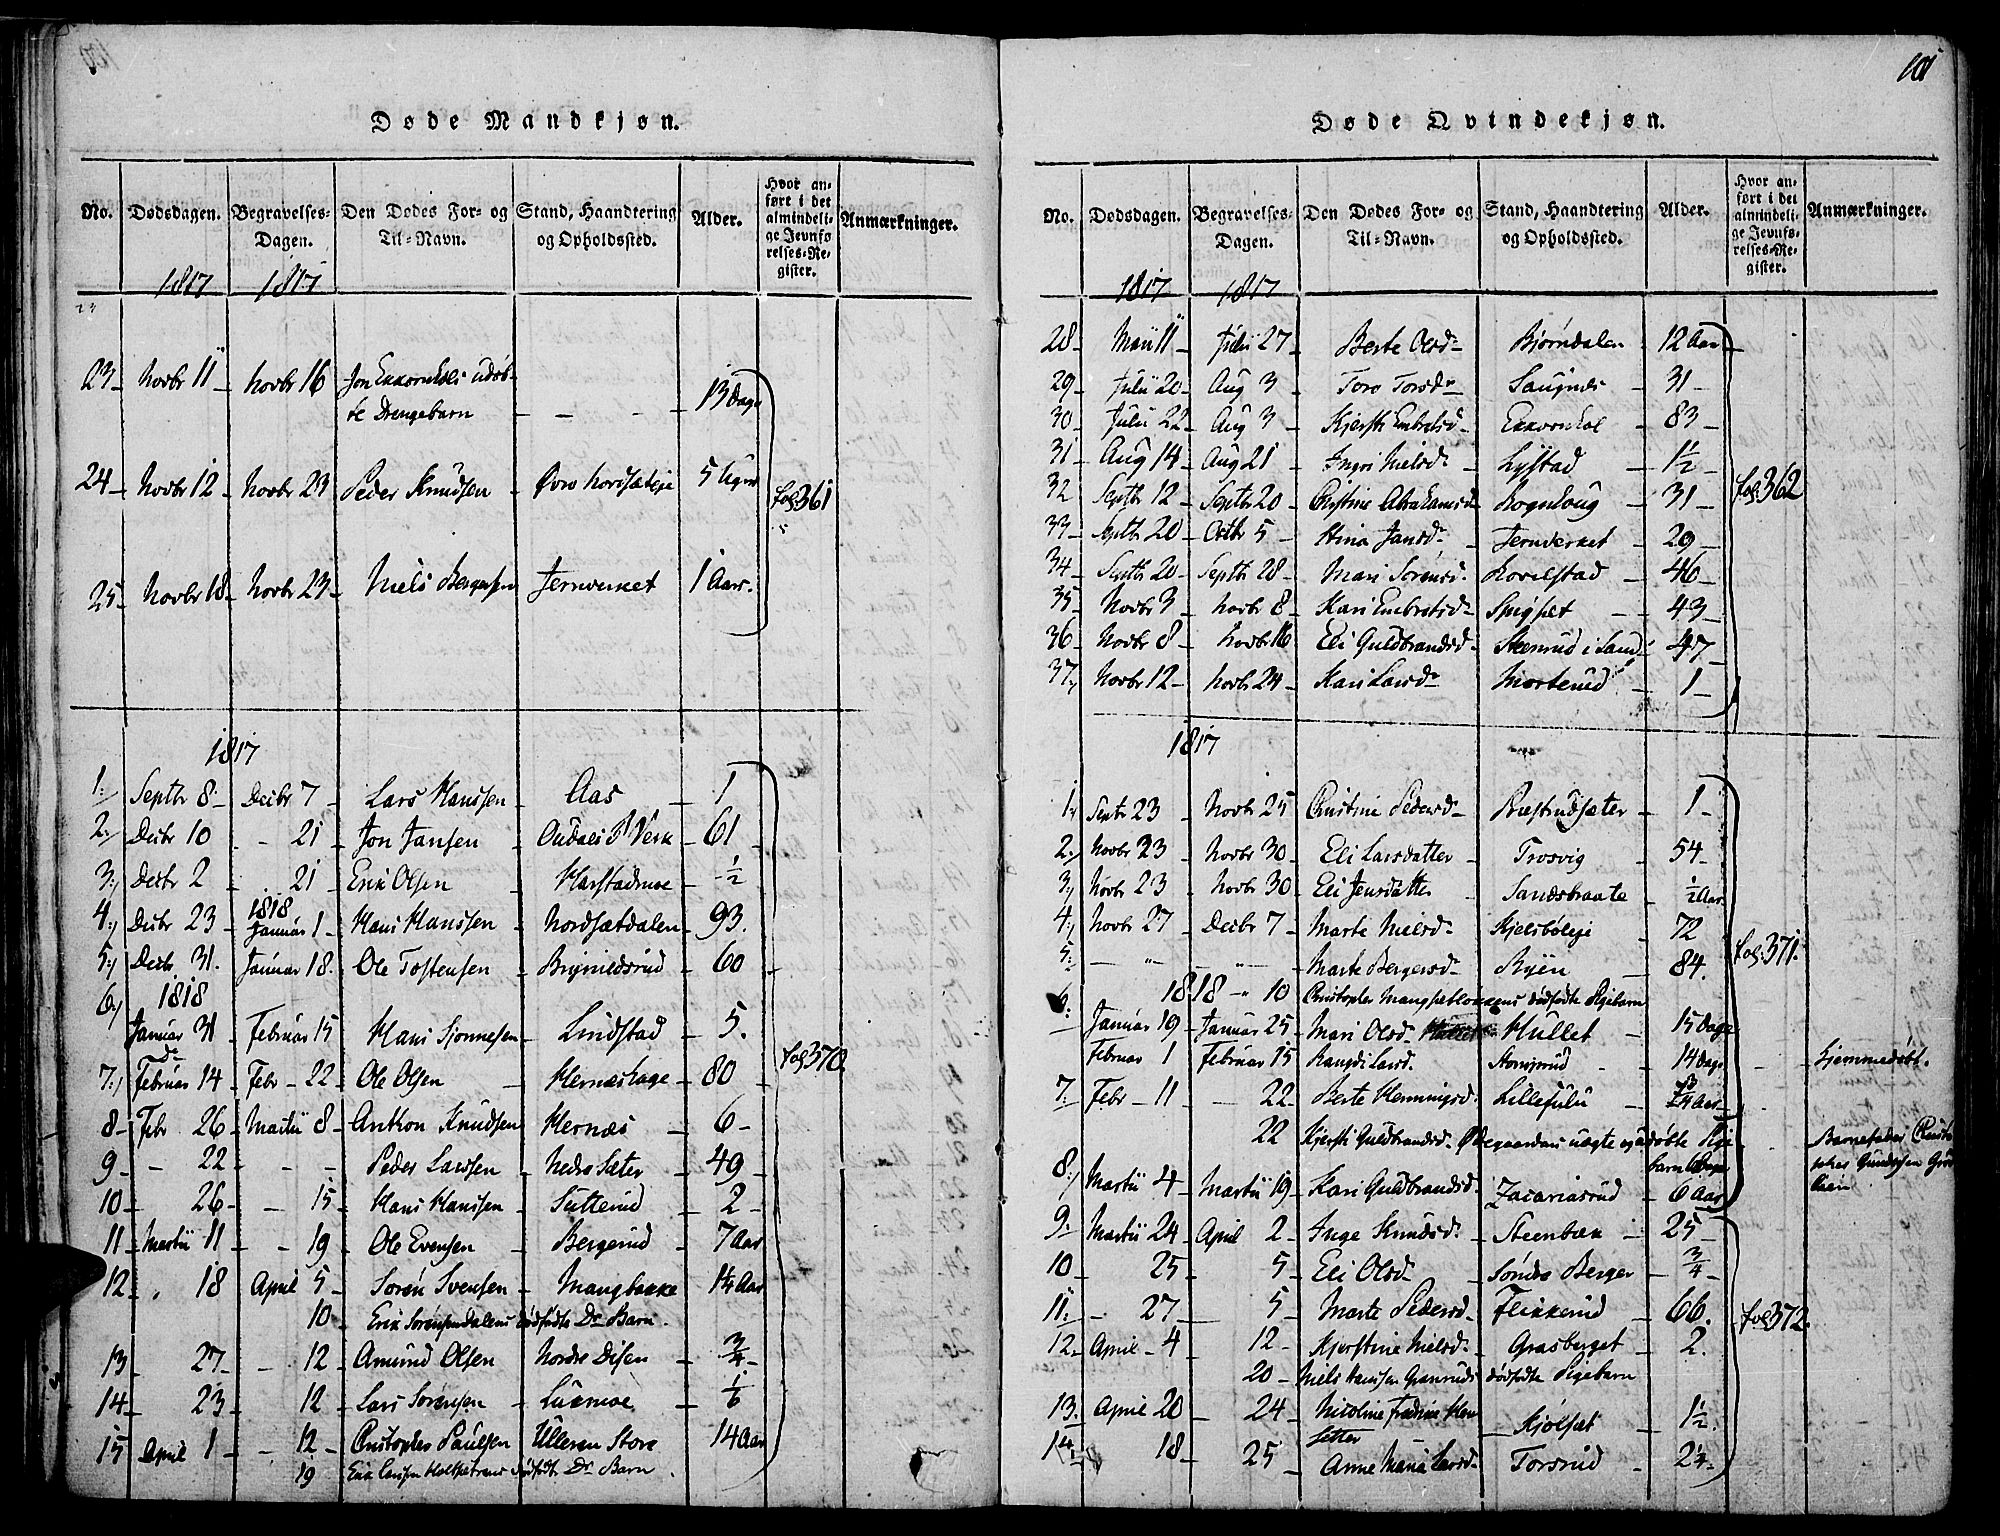 101
Døde Mandkjøn.
No. Dødsdagen. Begravelses-Dagen. Den Dødes For- og Til-Navn. Stand, Haandtering og Opholdssted. Alder. Hvor anført i det almindelige Jevnførelses-Register. Anmærkninger.
1817 1817
23 Novbr 11 Novbr 16 Jon Ekkornhols udøb-
te Drengebarn 13 Dage
24 Novbr 12 Novbr 23 Peder Knudsen 5 Uger fol: 361
25 Novbr 18 Novbr 23 Niels Bergersen Jernverket 1 Aar
1817
1 Septbr 8 Decbr 7 Lars Hanssen Aas 1
2 Decbr 10 - 21 Jon Jansen Oudals Verk 61
3 Decbr 2 21 Erik Olsen Harstadmoe ½
4 Decbr 23 1818 Januar 1 Hans Hanssen Nordsætdalen 93.
5 Decbr 31. Januar 18. Ole Tostensen 60
6 1818
Januar 31 Februar 15 Hans Sjonnesen Lindstad 5.
7 Februar 14 Febr 22 Ole Olsen Hernæshage 80 fol: 370
8 Febr 26 Martii 8 Anthon Knudsen Hernæs 6
9 - 22 - - Peder Larssen Nedre Sæter 49
10 26 15 Hans Hanssen Sutterud 2
11 Martii 11 - 19 Ole Evensen Bergerud 7 Aar
12 " 18 April 5 Soren Svensen Mangbakke 1¼ Aar
10 Erik Sørensdalens dødfødte Dr. Barn.
13 27 - 12 Amund Olsen Nordre Disen ¾
14 23 12 Lars Sørensen Lucmoe
15 April 1 - 12 Christopher Paulsen Ulleren Store 14 Aar
19 Erik Larssen dødfødte Dr. Barn.
Døde Qvindekjøn.
No. Dødsdagen. Begravelses-Dagen. Den Dødes For- og Til-Navn. Stand, Haandtering og Opholdssted. Alder. Hvor anført i det almindelige Jevnførelses-Register. Anmærkninger.
1817 1817
28 Maii 11 Julii 27 Berte Olsd. Bjørndalen 12 Aar
29 Julii 20 Aug 3 Toro Torsd. Saugnes 31
30 Julii 22 Aug 3 Kjersti Embretsd. Ekkornhol 83
31 Aug 14 Aug 21 Ingri Nielsd. Lystad 1½
32 Septbr 12 Septbr 20 Christine Abrahamsd. Rognhoug 31 fol: 362
33 Septbr 20 Octbr 5 Stina Jansd. Jernverket 29
34 Septbr 20 Septbr 28 Mari Sørensd. 46
35 Novbr 3 Novbr 8 Kari Embretsd. Spigset 43
36 Novbr 8 Novbr 16 Eli Guldbrandsd. Steenrud i Sand 47
37 Novbr 12 Novbr 24 Kari Larsd. Morterud 1
1817
1 Septr 23 Novbr 25 Christine Pedersd. Bæstrudsæter 1
2 Novbr 23 Novbr 30 Eli Larsdatter Trosvig 54
3 Novbr 23 Novbr 30 Eli Jensdatter Sandsbraate ½ Aar
4 Novbr 27 Decbr 7 Marte Nielsd. Kjelsbøleje 72
5 - " " Marte Bergersd. Ryen 84. fol: 371.
6 1818 " 10 Christopher dødfødte Pigebarn
Januar 19 Januar 25 Mari Olsd. Hullet 15 Dage
Februar 1 Februar 15 Rangdi Larsd. 14 Dage Hjemmedøbt.
7 Febr 11 22 Berte Henningsd. Lillefulu ¾ Aar
22 Kjersti Guldbrandsd. Ødegaardens uægte og udøbte Pige-
barn Barnefader Christo-
8 Martii 4 Martii 19 Kari Guldbrandsd. Zacariasrud 6 Aar
9 Martii 24 April 2 Inge Knudsd. Steenbæk 25
10 25 5 Eli Olsd. Søndre Berger ¾
11 27 5 Marte Pedersd. Flikkerud 66. fol: 372.
12 April 4 12 Kjerstine Nielsd. Grasberget 2.
20 Niels Hanssen Granruds dødfødte Pigebarn
13. April 20 24 Nicoline Fredrine Kjølset 1½
14 18 25 Anne Maria Larsd. Torsrud 2¼